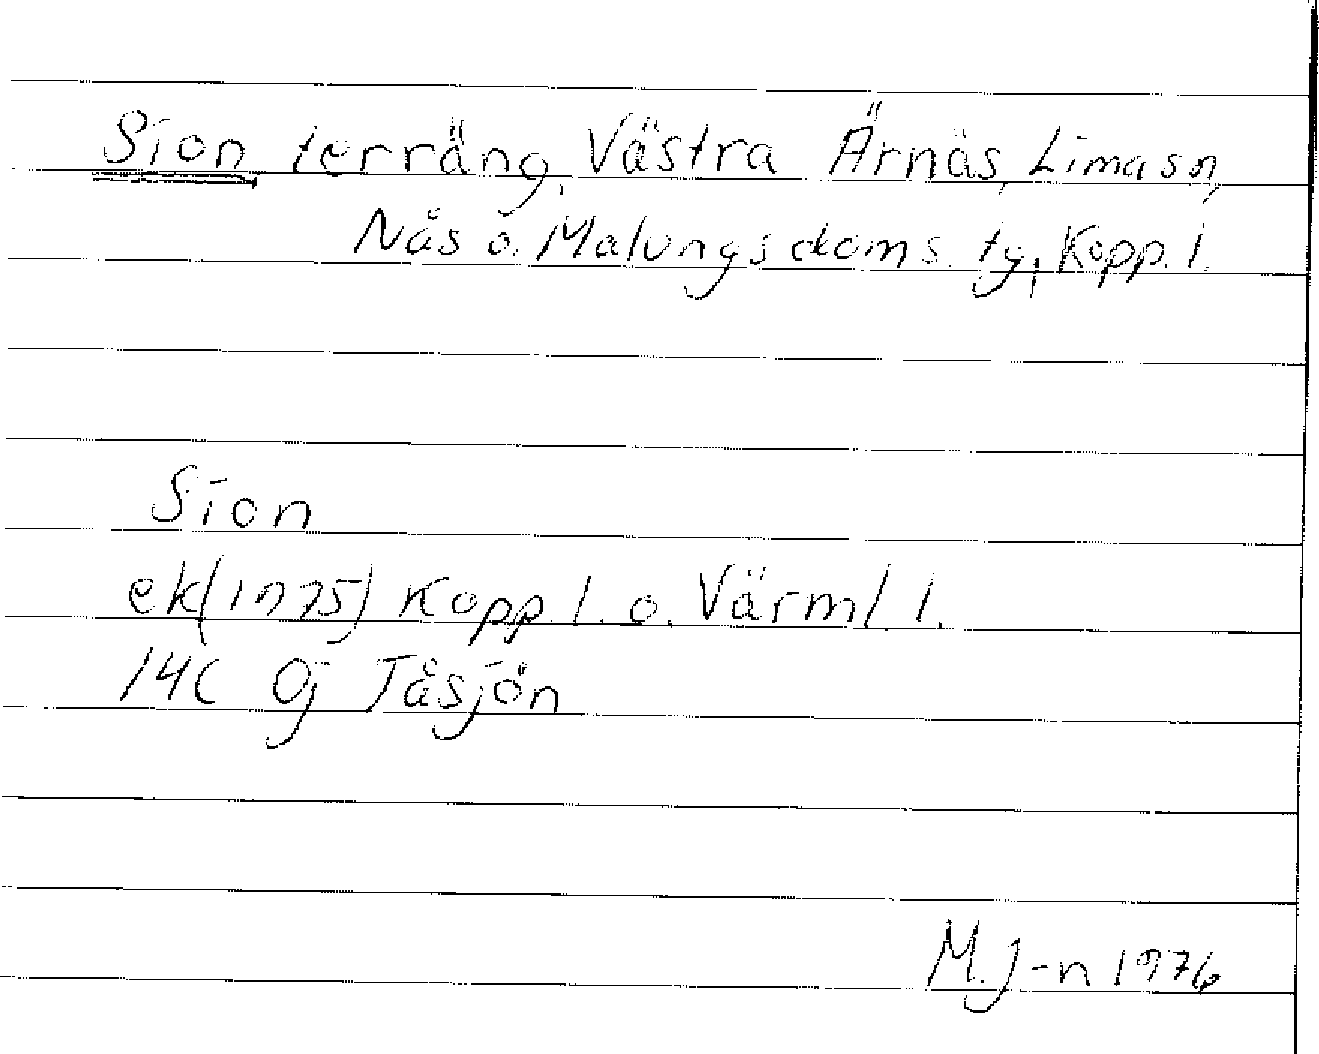 Sion terräng, Västra Ärnäs, Lima sn,
Nås o. Malungs doms. tg, Kopp. l.
Sion
ek(1975) Kopp. l. o. Värml. l.
14C 0j Tåsjön
M. J-n 1976